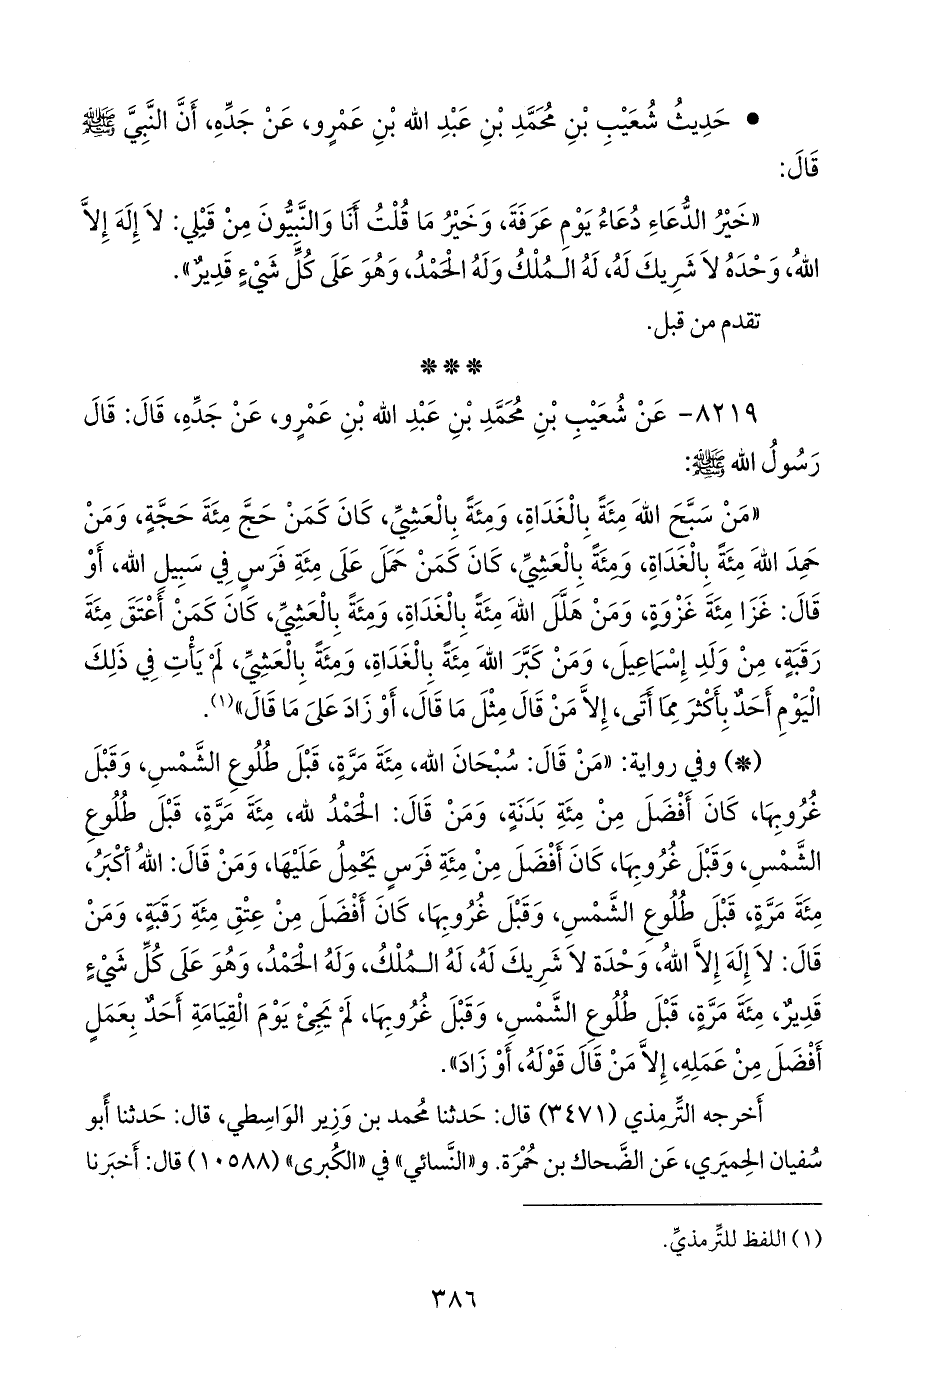 • حَدِيثُ شُعَيْبِ بْنِ مُحَمَّدِ بْنِ عَبْدِ الله بْنِ عَمْرٍو، عَنْ جَدِّهِ، أَنَّ النَّبِيَّ ﷺ
قَالَ:
«خَيْرُ الدُّعَاءِ دُعَاءُ يَوْمِ عَرَفَةَ، وَخَيْرُ مَا قُلْتُ أَنَا وَالنَّبِيُّونَ مِنْ قَبْلِي: لاَ إِلَهَ إِلاَّ
اللهُ، وَحْدَهُ لاَ شَرِيكَ لَهُ، لَهُ الـمُلْكُ وَلَهُ الْحَمْدُ، وَهُوَ عَلَى كُلِّ شَيْءٍ قَدِيرٌ».
تقدم من قبل.
***
٨٢١٩- عَنْ شُعَيْبِ بْنِ مُحَمَّدِ بْنِ عَبْدِ الله بْنِ عَمْرٍو، عَنْ جَدِّهِ، قَالَ: قَالَ
رَسُولُ الله ﷺ:
«مَنْ سَبَّحَ اللهَ مِئَةً بِالْغَدَاةِ، وَمِئَةً بِالْعَشِيِّ، كَانَ كَمَنْ حَجَّ مِئَةَ حَجَّةٍ، وَمَنْ
حَمِدَ اللهَ مِئَةً بِالْغَدَاةِ، وَمِئَةً بِالْعَشِيِّ، كَانَ كَمَنْ حَمَلَ عَلَى مِئَةِ فَرَسٍ فِي سَبِيلِ الله، أَوْ
قَالَ: غَزَا مِئَةَ غَزْوَةٍ، وَمَنْ هَلَّلَ اللهَ مِئَةً بِالْغَدَاةِ، وَمِئَةً بِالْعَشِيِّ، كَانَ كَمَنْ أَعْتَقَ مِئَةَ
رَقَبَةٍ، مِنْ وَلَدِ إِسْمَاعِيلَ، وَمَنْ كَبَّرَ اللهَ مِئَةً بِالْغَدَاةِ، وَمِئَةً بِالْعَشِيِّ، لَمْ يَأْتِ فِي ذَلِكَ
الْيَوْمِ أَحَدٌ بِأَكْثَرَ مِمَّا أَتَى، إِلاَّ مَنْ قَالَ مِثْلَ مَا قَالَ، أَوْ زَادَ عَلَى مَا قَالَ»(١).
(*) وفي رواية: «مَنْ قَالَ: سُبْحَانَ الله، مِئَةَ مَرَّةٍ، قَبْلَ طُلُوعِ الشَّمْسِ، وَقَبْلَ
غُرُوبِهَا، كَانَ أَفْضَلَ مِنْ مِئَةِ بَدَنَةٍ، وَمَنْ قَالَ: الْحَمْدُ لله، مِئَةَ مَرَّةٍ، قَبْلَ طُلُوعِ
الشَّمْسِ، وَقَبْلَ غُرُوبِهَا، كَانَ أَفْضَلَ مِنْ مِئَةِ فَرَسٍ يَحْمِلُ عَلَيْهَا، وَمَنْ قَالَ: اللهُ أَكْبَرُ،
مِئَةَ مَرَّةٍ، قَبْلَ طُلُوعِ الشَّمْسِ، وَقَبْلَ غُرُوبِهَا، كَانَ أَفْضَلَ مِنْ عِتْقِ مِئَةِ رَقَبَةٍ، وَمَنْ
قَالَ: لاَ إِلَهَ إِلاَّ اللهُ، وَحْدَهُ لاَ شَرِيكَ لَهُ، لَهُ الـمُلْكُ، وَلَهُ الْحَمْدُ، وَهُوَ عَلَى كُلِّ شَيْءٍ
قَدِيرٌ، مِئَةَ مَرَّةٍ، قَبْلَ طُلُوعِ الشَّمْسِ، وَقَبْلَ غُرُوبِهَا، لَمْ يَجِئْ يَوْمَ الْقِيَامَةِ أَحَدٌ بِعَمَلٍ
أَفْضَلَ مِنْ عَمَلِهِ، إِلاَّ مَنْ قَالَ قَوْلَهُ، أَوْ زَادَ».
أَخرجه التِّرمِذي (٣٤٧١) قال: حَدثنا مُحمد بن وَزِير الوَاسِطي، قال: حَدثنا أَبو
سُفيان الحِميَري، عَن الضَّحاك بن حُمْرَة. و«النَّسائي» في «الكُبرى» (١٠٥٨٨) قال: أَخبَرنا
(١) اللفظ للتِّرمذيِّ.
٣٨٦